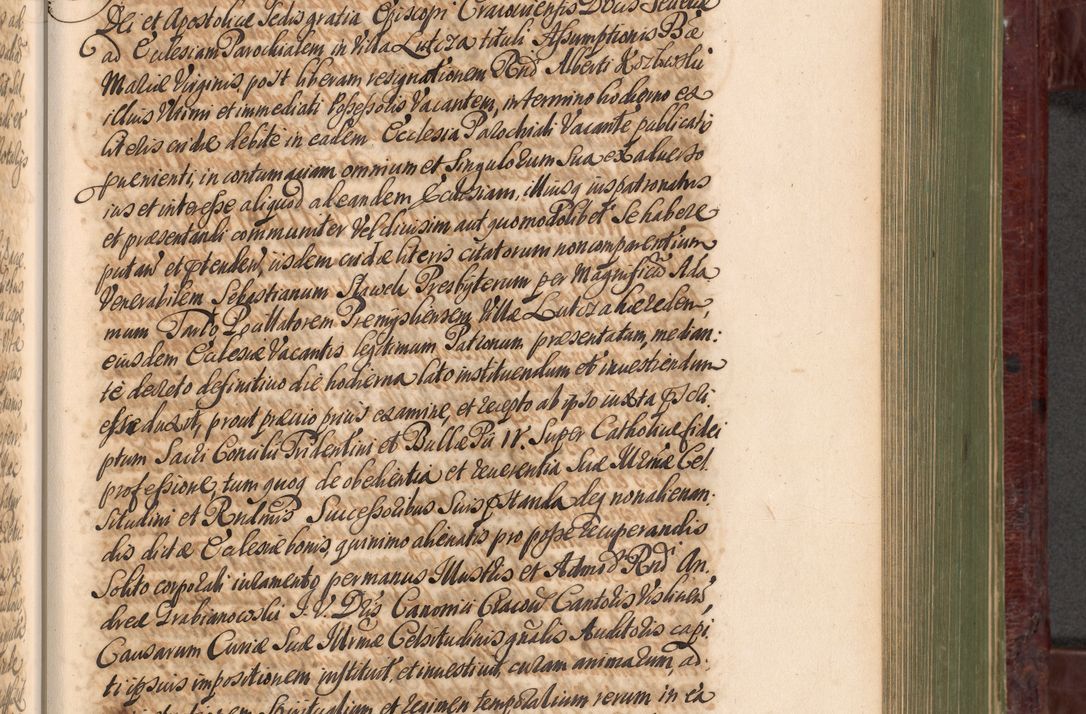 Dei et Apostolicæ Sedis gratia Episcopi Cracoviensis Ducis Severiæ
ad Ecclesiam Parochialem in Villa Lutcza tituli Assumptionis Bæ
Mariæ Virginis, post liberam resignationem Rndi Alberti Kozłowski
illius Ultimi et immediati Possessoris Vacantem, in termino hodierno ex
literis cridæ debite in eadem Ecclesia Parochiali Vacante publicatis
puenienti, in contumaciam omnium et Singulorum Sua ex adverso
ius et interesse aliquod ad eandem Ecclesiam, illiusq iuspatronatus
et præsentandi communiter Vel divisim aut quomodolibet Se habere
putan et ptenden iisdem cridæ literis citatorum non comparentium
Venerabilem Sebastianum Presbyterum per Magnificum Ada
mum Tarło Premyshensem, Villæ Lutcza hæredem,
eiusdem Ecclesiæ Vacantis legitimum Patronum præsentatum, median:
te decreto definitivo die hodierna lato instituendum et investiendum
esse duxit, prout prævio prius examine, et recepto ab ipso iuxta pscri
ptum Sacri Concilii Tridentini et Bullæ Pii IV. Super Catholicæ fidei
professione, tum quoq de obedientia et reverentia Suæ Illrmæ Cel
situdini et Rndmis Successoribus Suis pstanda, deq non alienan:
dis dictæ Ecclesiæ bonis, quinimo alienatis pro posse recuperandis
Solito corporali iuramento, per manus Illustris et Admod Rndi An:
dreæ Grabianowski I. V. Dris Canonici Cracovi Cantoris Vislicien,
Causarum Curiæ Suæ Illrmæ Celsitudinis gnalis Auditoris capi
ti ipsius impositionem instituit, et investivit, curam animarum, ad:
Spiritualium et regimen temporalium rerum in ea